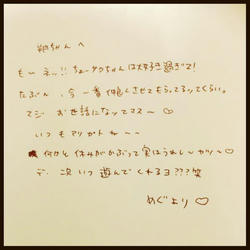 もーネッ!! ちょータクちゃんは大好き過ぎて!
たぶん、今一番 させてもらってるってくらい。
マジ お世話になってマス〜♡
いつもアリガトね〜〜
何かと休みがかぶって実はうれしーカリ〜♡
で、次いつ遊んでくれるヨ???笑
めぐより♡